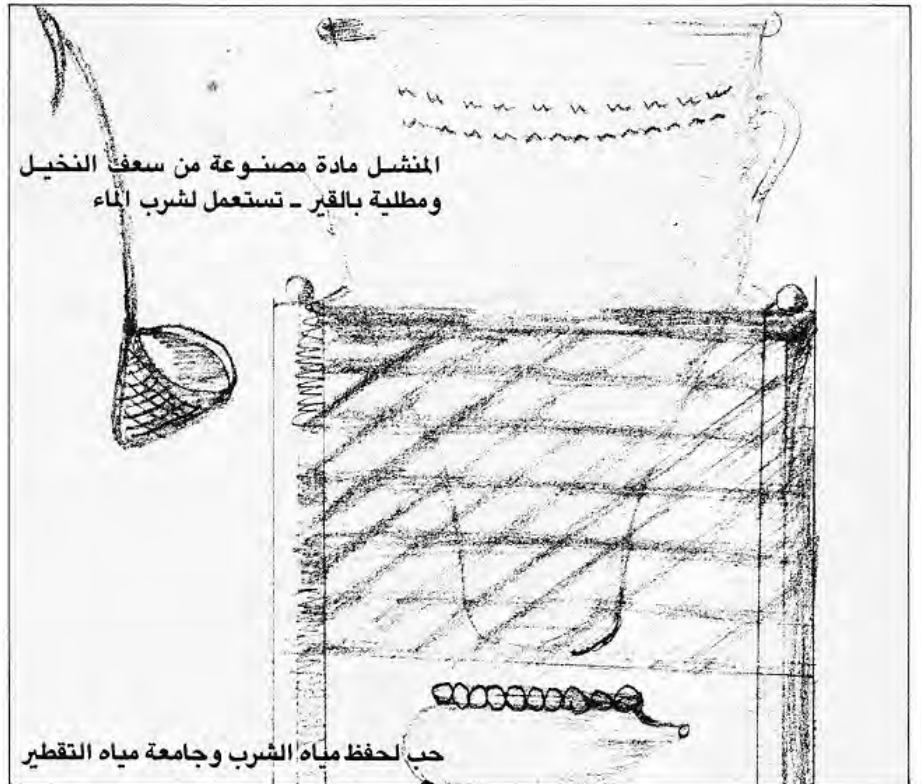 المنشل مادة مصنوعة من سعف النخيل
ومطلية بالقير - تستعمل لشرب الماء
حب لحفظ مياه الشرب وجامعة مياه التقطير